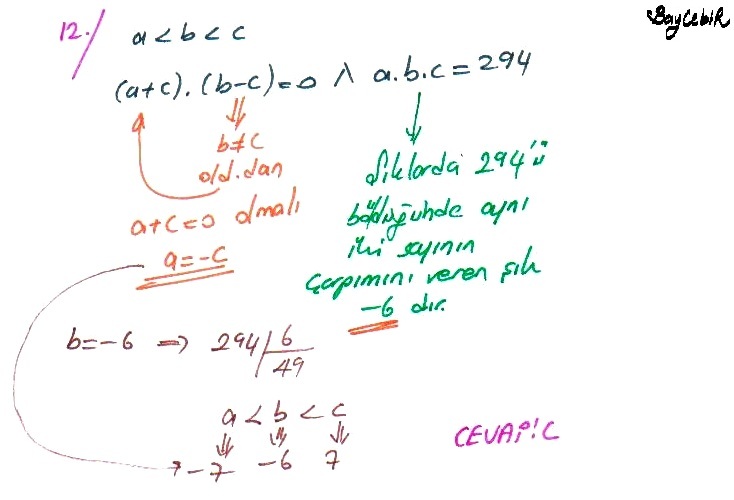 BayCebiR
12.) a < b < c
(a+c).(b-c)=0 ∧ a.b.c = 294
b≠c
old.dan
a+c=0 olmalı
a=-c
Şıklarda 294'ü
böldüğünde aynı
iki sayının
çarpımını veren şık
-6 dır.
b=-6 ⇒ 294 | 6
49
a < b < c
-7 -6 7
CEVAP: C